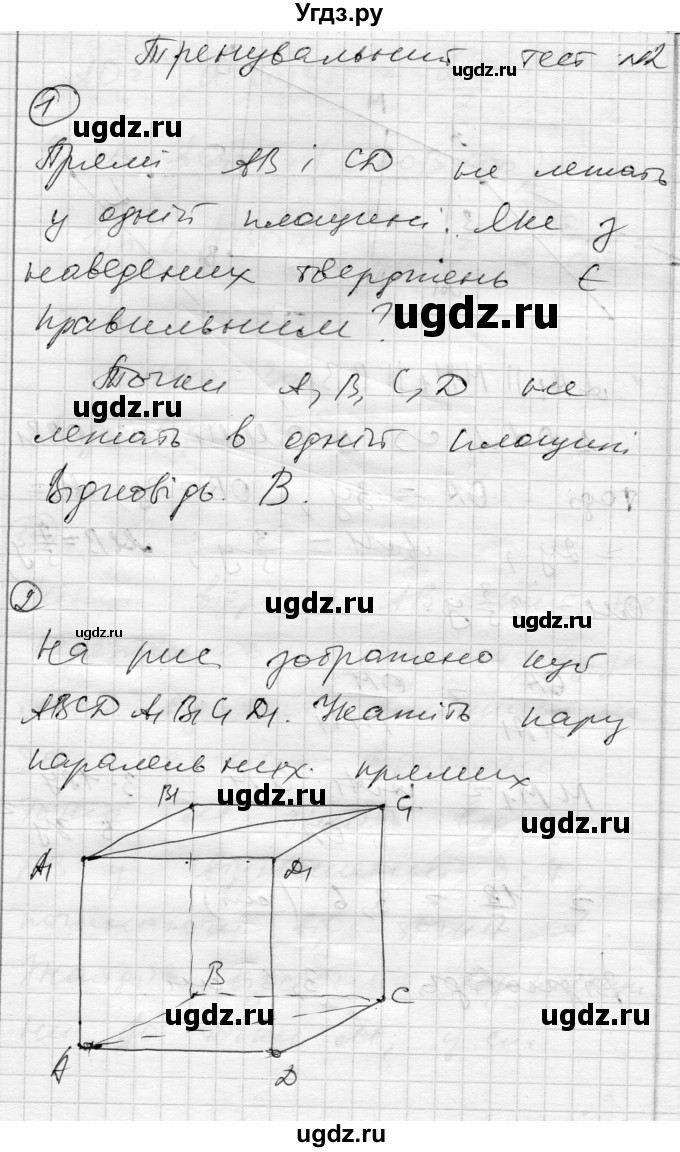 Угдз.ру
Тренувальний тест №2
ugdz.ru
1
ugdz.ru
Прямі AB і CD не лежать
у одній площині. Яке з
наведених тверджень є
правильним?
ugdz.ru
Точки A, B, C, D не
ugdz.ru
лежать в одній площині
Відповідь. В.
2
ugdz.ru
ugdz.ru
ugdz.ru
На рис зображено куб
ABCD A1 B1 C1 D1. Укажіть пару
паралельних прямих
B1
ugdz.ru
C1
ugdz.ru
A1
D1
B
C
ugdz.ru
ugdz.ru
A
D
ugdz.ru